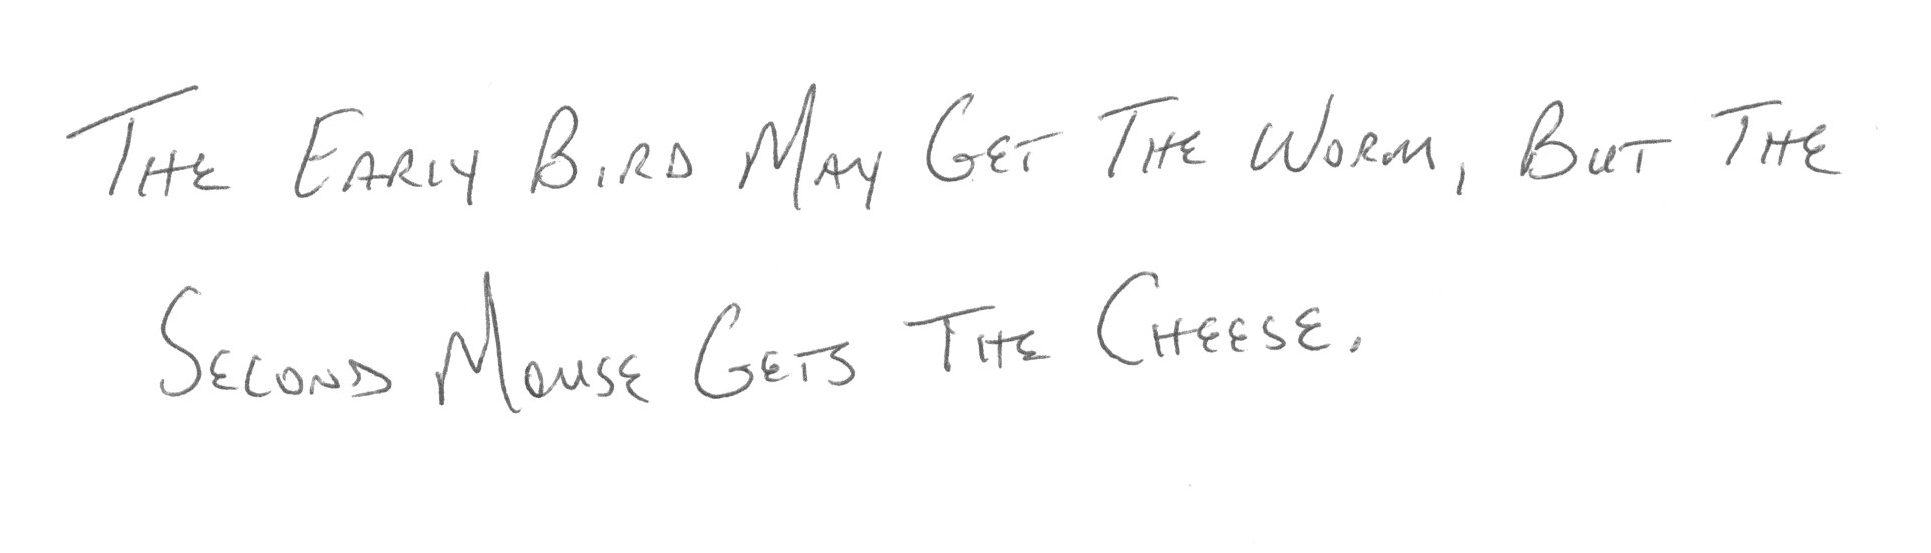 The Early Bird May Get The Worm, But The
Second Mouse Gets The Cheese.